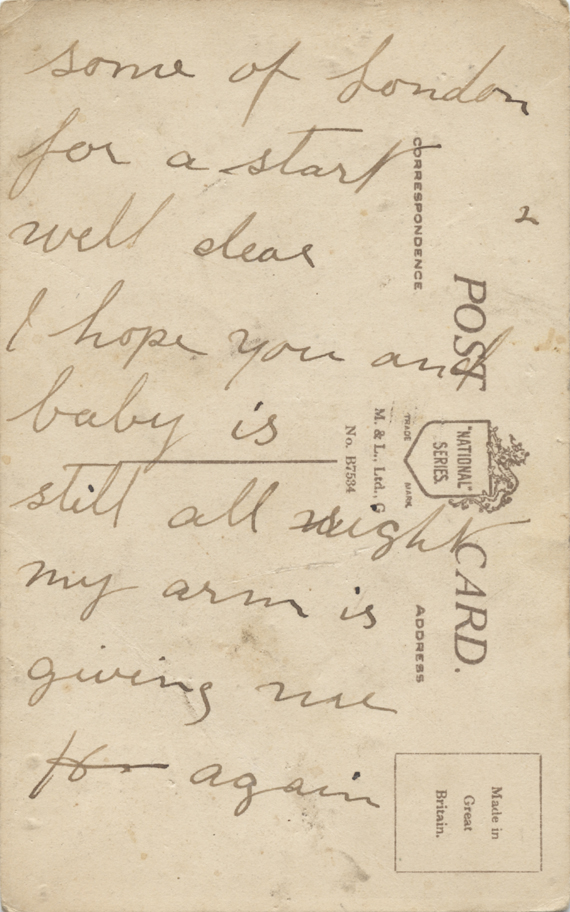 some of London
for a start
2
well dear
I hope you and
baby is
still all right
my arm is
giving me
again
CORRESPONDENCE
POST CARD.
"NATIONAL"
SERIES.
TRADE MARK
M. & L., Ltd.,
No. B7534
ADDRESS
Made in
Great
Britain.